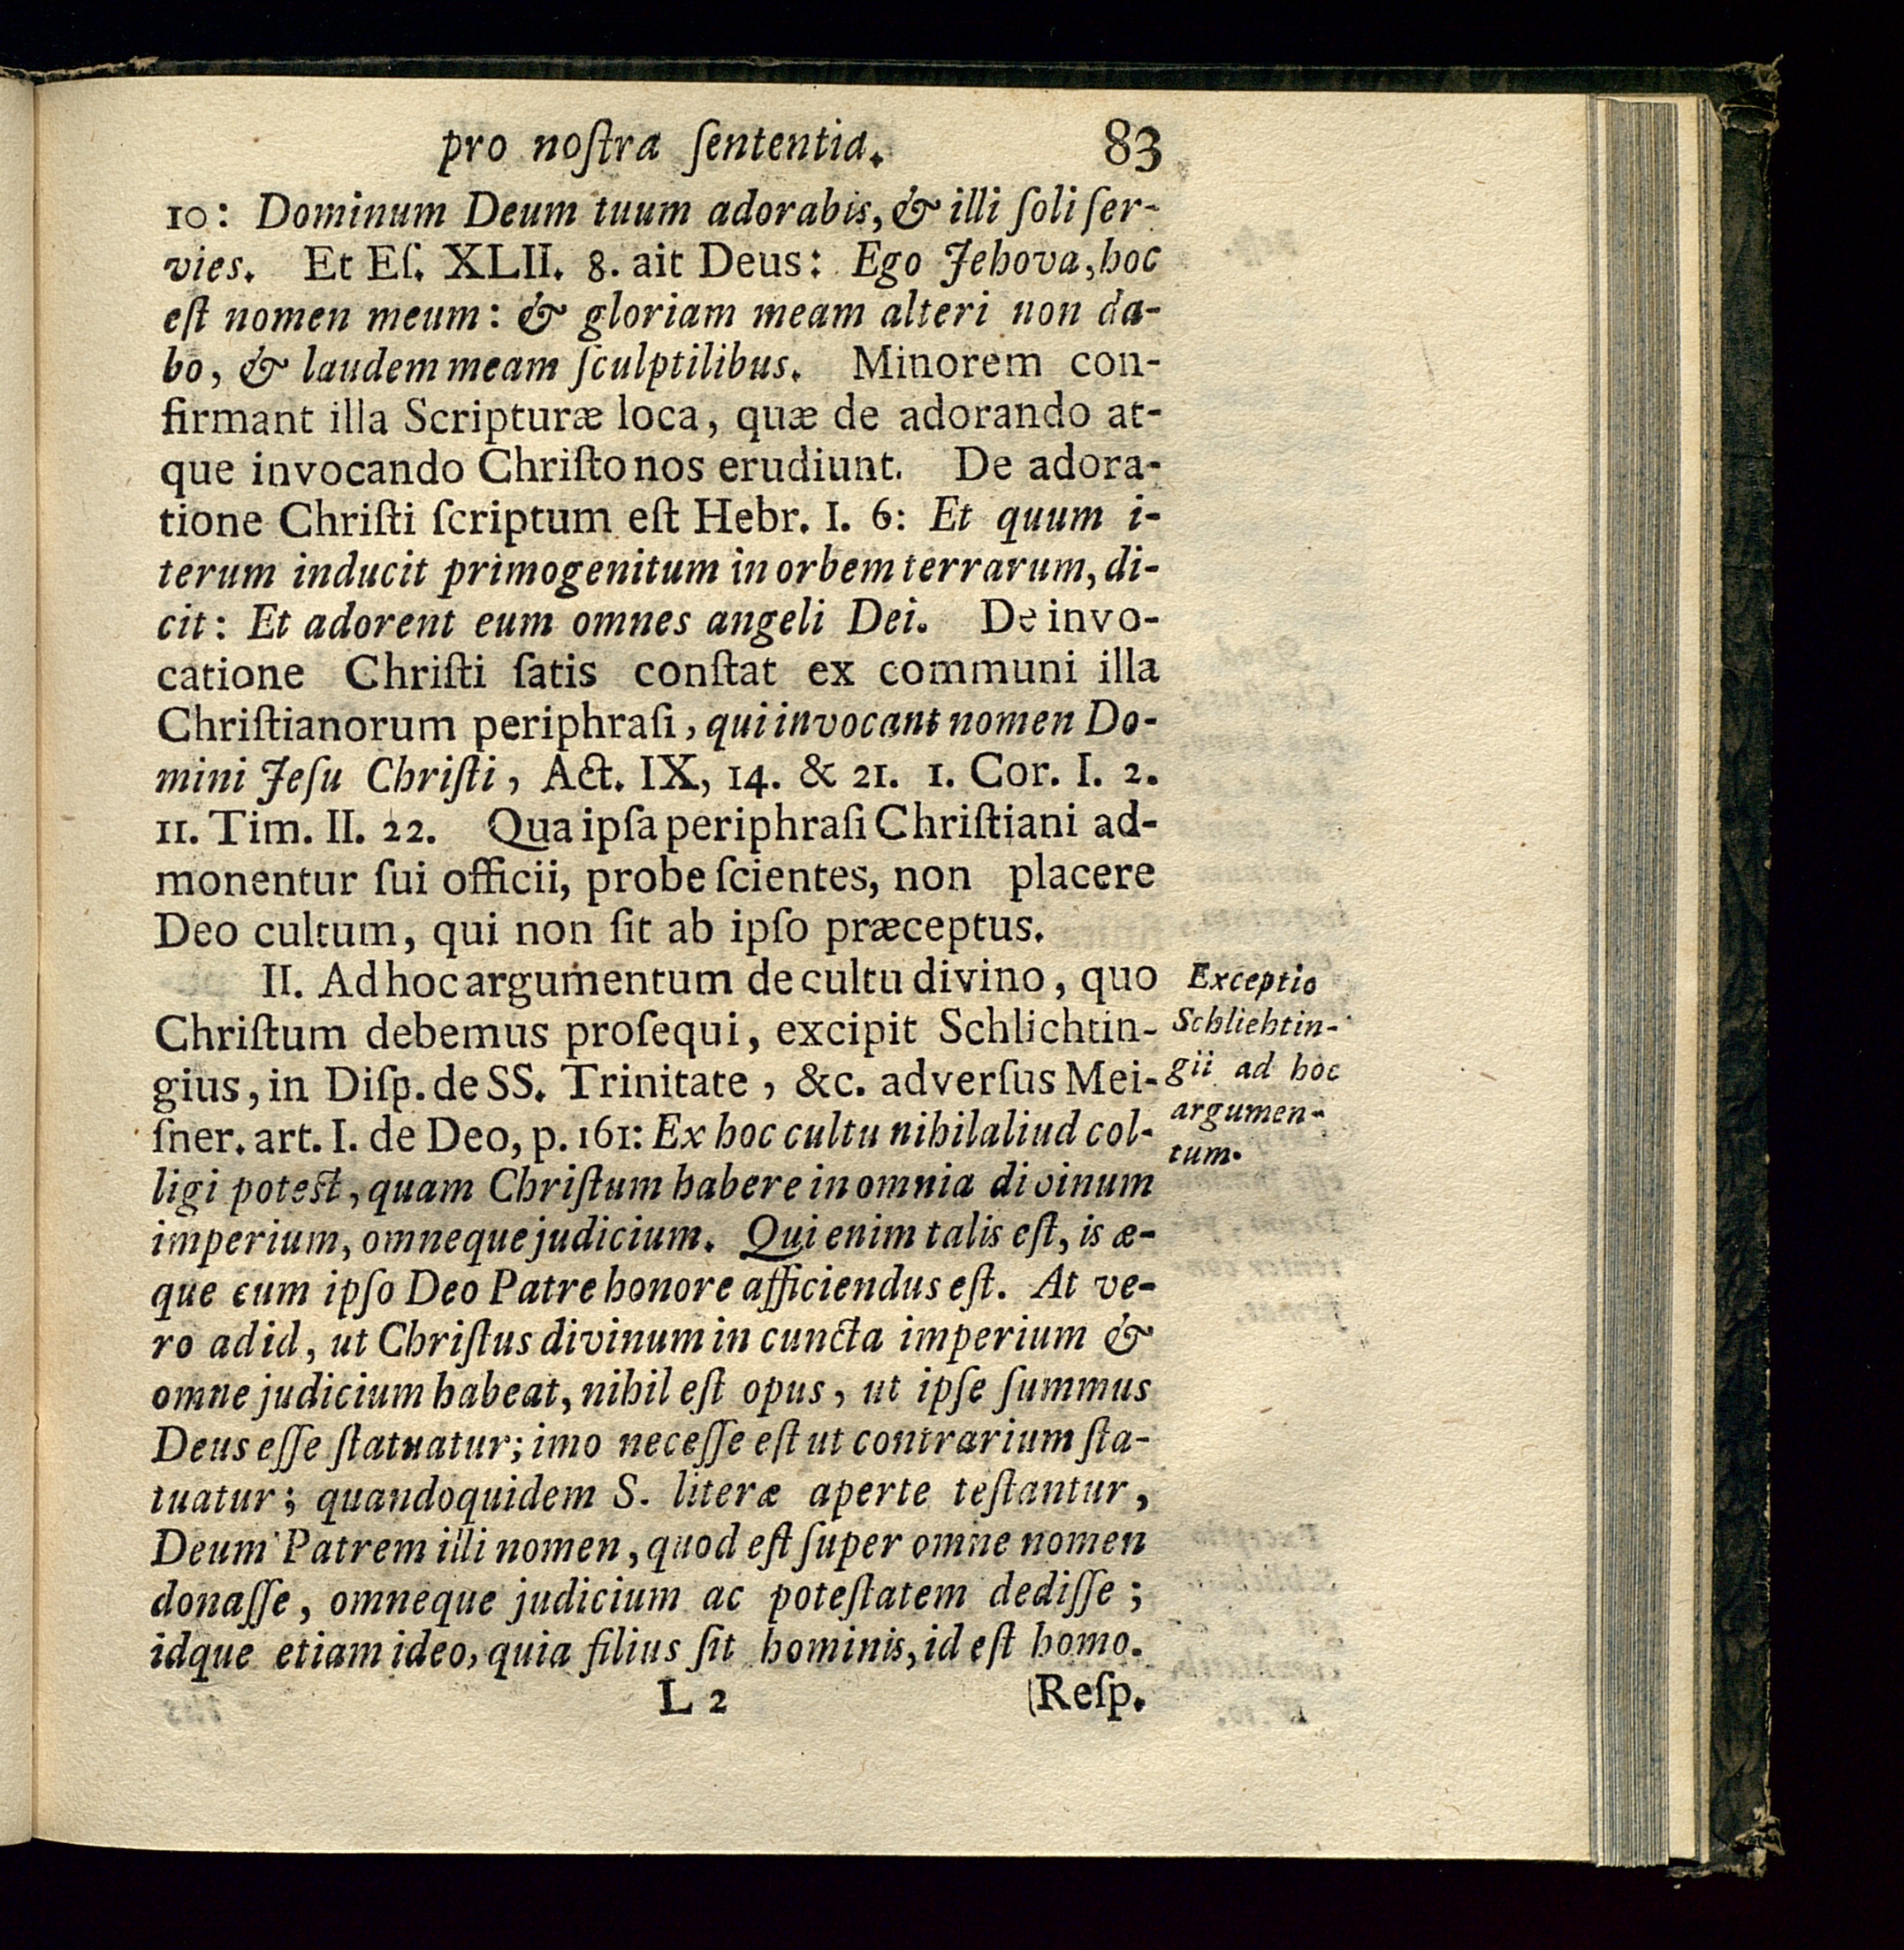 pro noſtra ſententia. 83
10: Dominum Deum tuum adorabis, & illi ſoli ſer-
vies. Et Eſ. XLII. 8. ait Deus: Ego Jehova, hoc
eſt nomen meum: & gloriam meam alteri non da-
bo, & laudem meam ſculptilibus. Minorem con-
firmant illa Scripturæ loca, quæ de adorando at-
que invocando Chriſto nos erudiunt. De adora-
tione Chriſti ſcriptum eſt Hebr. I. 6: Et quum i-
terum inducit primogenitum in orbem terrarum, di-
cit: Et adorent eum omnes angeli Dei. De invo-
catione Chriſti ſatis conſtat ex communi illa
Chriſtianorum periphraſi, qui invocant nomen Do-
mini Jeſu Chriſti, Act. IX, 14. & 21. 1. Cor. I. 2.
11. Tim. II. 22. Qua ipſa periphraſi Chriſtiani ad-
monentur ſui officii, probe ſcientes, non placere
Deo cultum, qui non ſit ab ipſo præceptus.
II. Ad hoc argumentum de cultu divino, quo
Chriſtum debemus proſequi, excipit Schlichtin-
gius, in Diſp. de SS. Trinitate, &c. adverſus Mei-
ſner. art. I. de Deo, p. 161: Ex hoc cultu nihil aliud col-
ligi poteſt, quam Chriſtum habere in omnia divinum
imperium, omneque judicium. Qui enim talis eſt, is æ-
que cum ipſo Deo Patre honore afficiendus eſt. At ve-
ro ad id, ut Chriſtus divinum in cuncta imperium &
omne judicium habeat, nihil eſt opus, ut ipſe ſummus
Deus eſſe ſtatuatur; imo neceſſe eſt ut contrarium ſta-
tuatur; quandoquidem S. literæ aperte teſtantur,
Deum Patrem illi nomen, quod eſt ſuper omne nomen
donaſſe, omneque judicium ac poteſtatem dediſſe;
idque etiam ideo, quia filius ſit hominis, id eſt homo.
L 2 Reſp.
Exceptio
Schliehtin-
gii ad hoc
argumen-
tum.